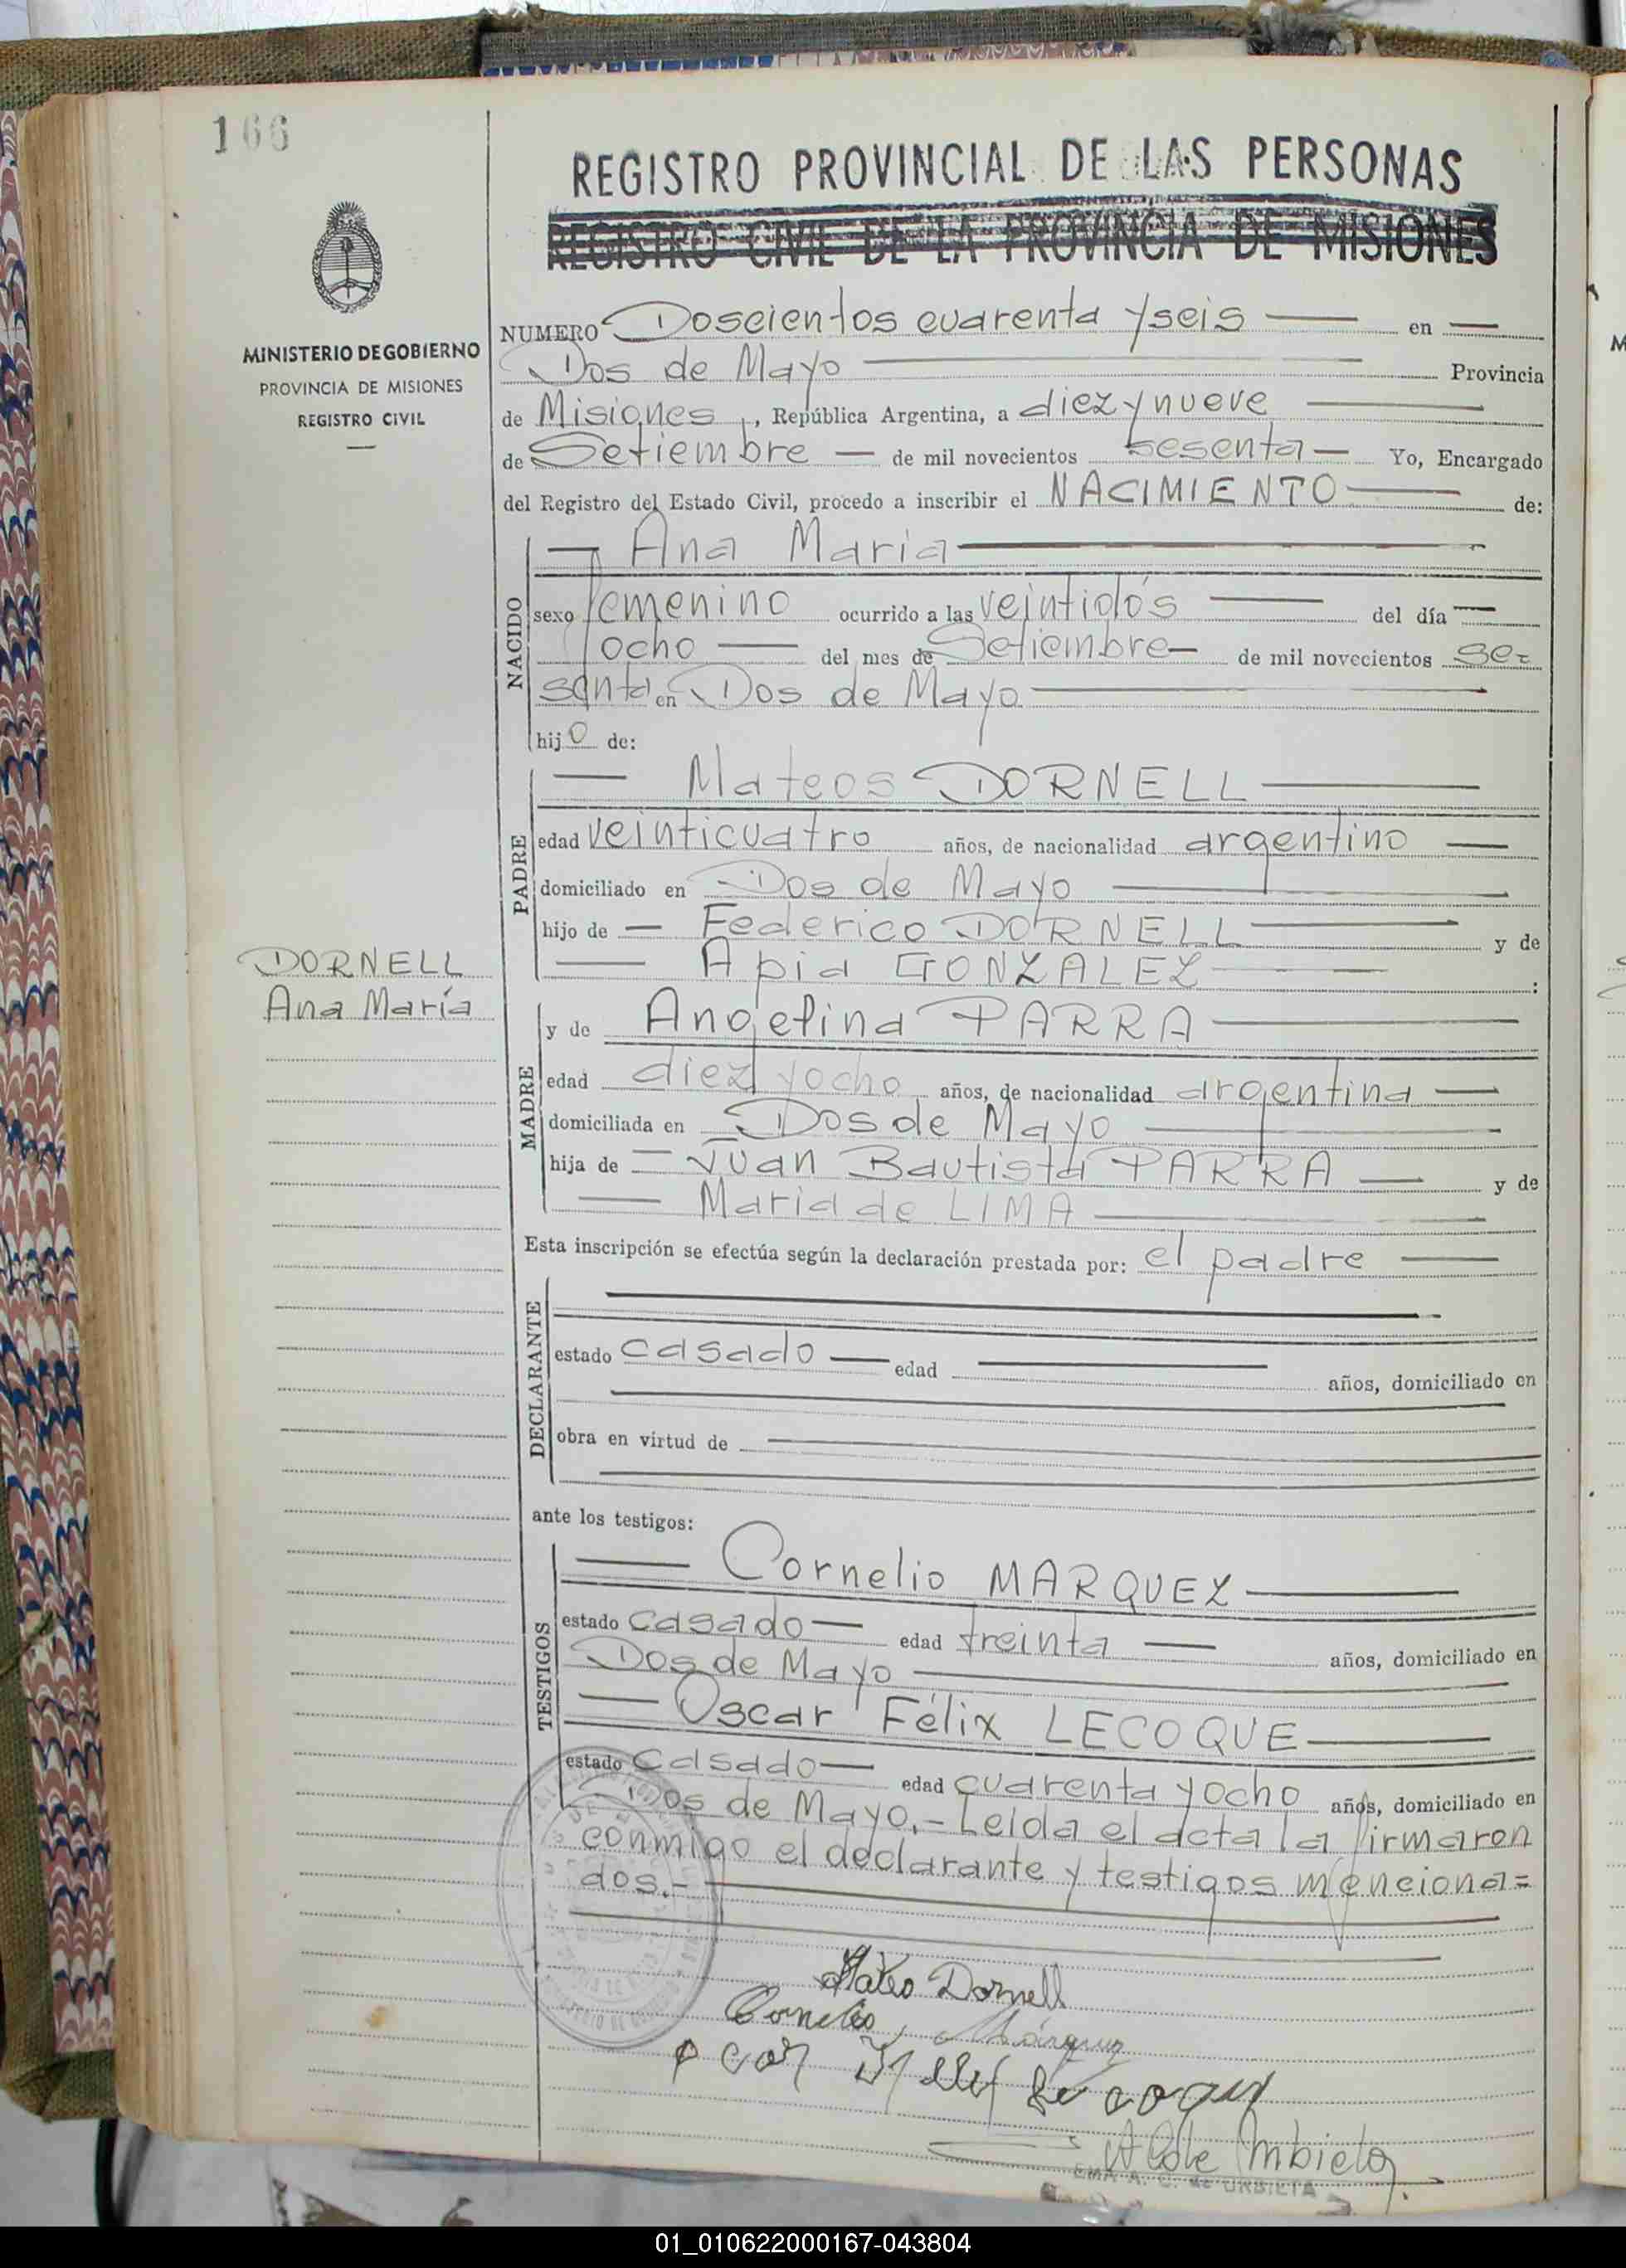 166
REGISTRO PROVINCIAL DE LAS PERSONAS
REGISTRO CIVIL DE LA PROVINCIA DE MISIONES
MINISTERIO DE GOBIERNO
PROVINCIA DE MISIONES
REGISTRO CIVIL
NUMERO Doscientos cuarenta y seis en
Dos de Mayo Provincia
de Misiones, República Argentina, a diez y nueve
de Setiembre de mil novecientos sesenta Yo, Encargado
del Registro del Estado Civil, procedo a inscribir el NACIMIENTO de:
NACIDO
Ana Maria
sexo femenino ocurrido a las veintidós del día
ocho del mes de Setiembre de mil novecientos se=
senta en Dos de Mayo
hijo de:
PADRE
Mateos DORNELL
edad veinticuatro años, de nacionalidad argentino
domiciliado en Dos de Mayo
hijo de Federico DORNELL y de
Apia GONZALEZ :
DORNELL
Ana María
MADRE
y de Angelina PARRA
edad diez y ocho años, de nacionalidad argentina
domiciliada en Dos de Mayo
hija de Juan Bautista PARRA y de
Maria de LIMA
Esta inscripción se efectúa según la declaración prestada por: el padre
DECLARANTE
estado casado edad años, domiciliado en
obra en virtud de
ante los testigos:
TESTIGOS
Cornelio MARQUEZ
estado casado edad treinta años, domiciliado en
Dos de Mayo
Oscar Félix LECOQUE
estado casado edad cuarenta y ocho años, domiciliado en
Dos de Mayo.- Leída el acta la firmaron
conmigo el declarante y testigos menciona=
dos.-
Mateo Dornell
Cornelio Márquez
EMA A. C. de URBIETA
01_010622000167-043804